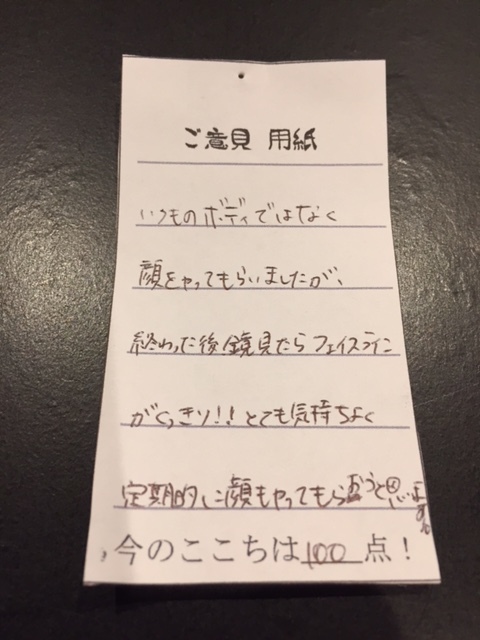 ご意見 用紙
いつものボディではなく
顔をやってもらいましたが、
終わった後鏡見たらフェイスライン
がくっきり!!とても気持ちよく
定期的に顔もやってもらおうと思います。
今のここちは100点!